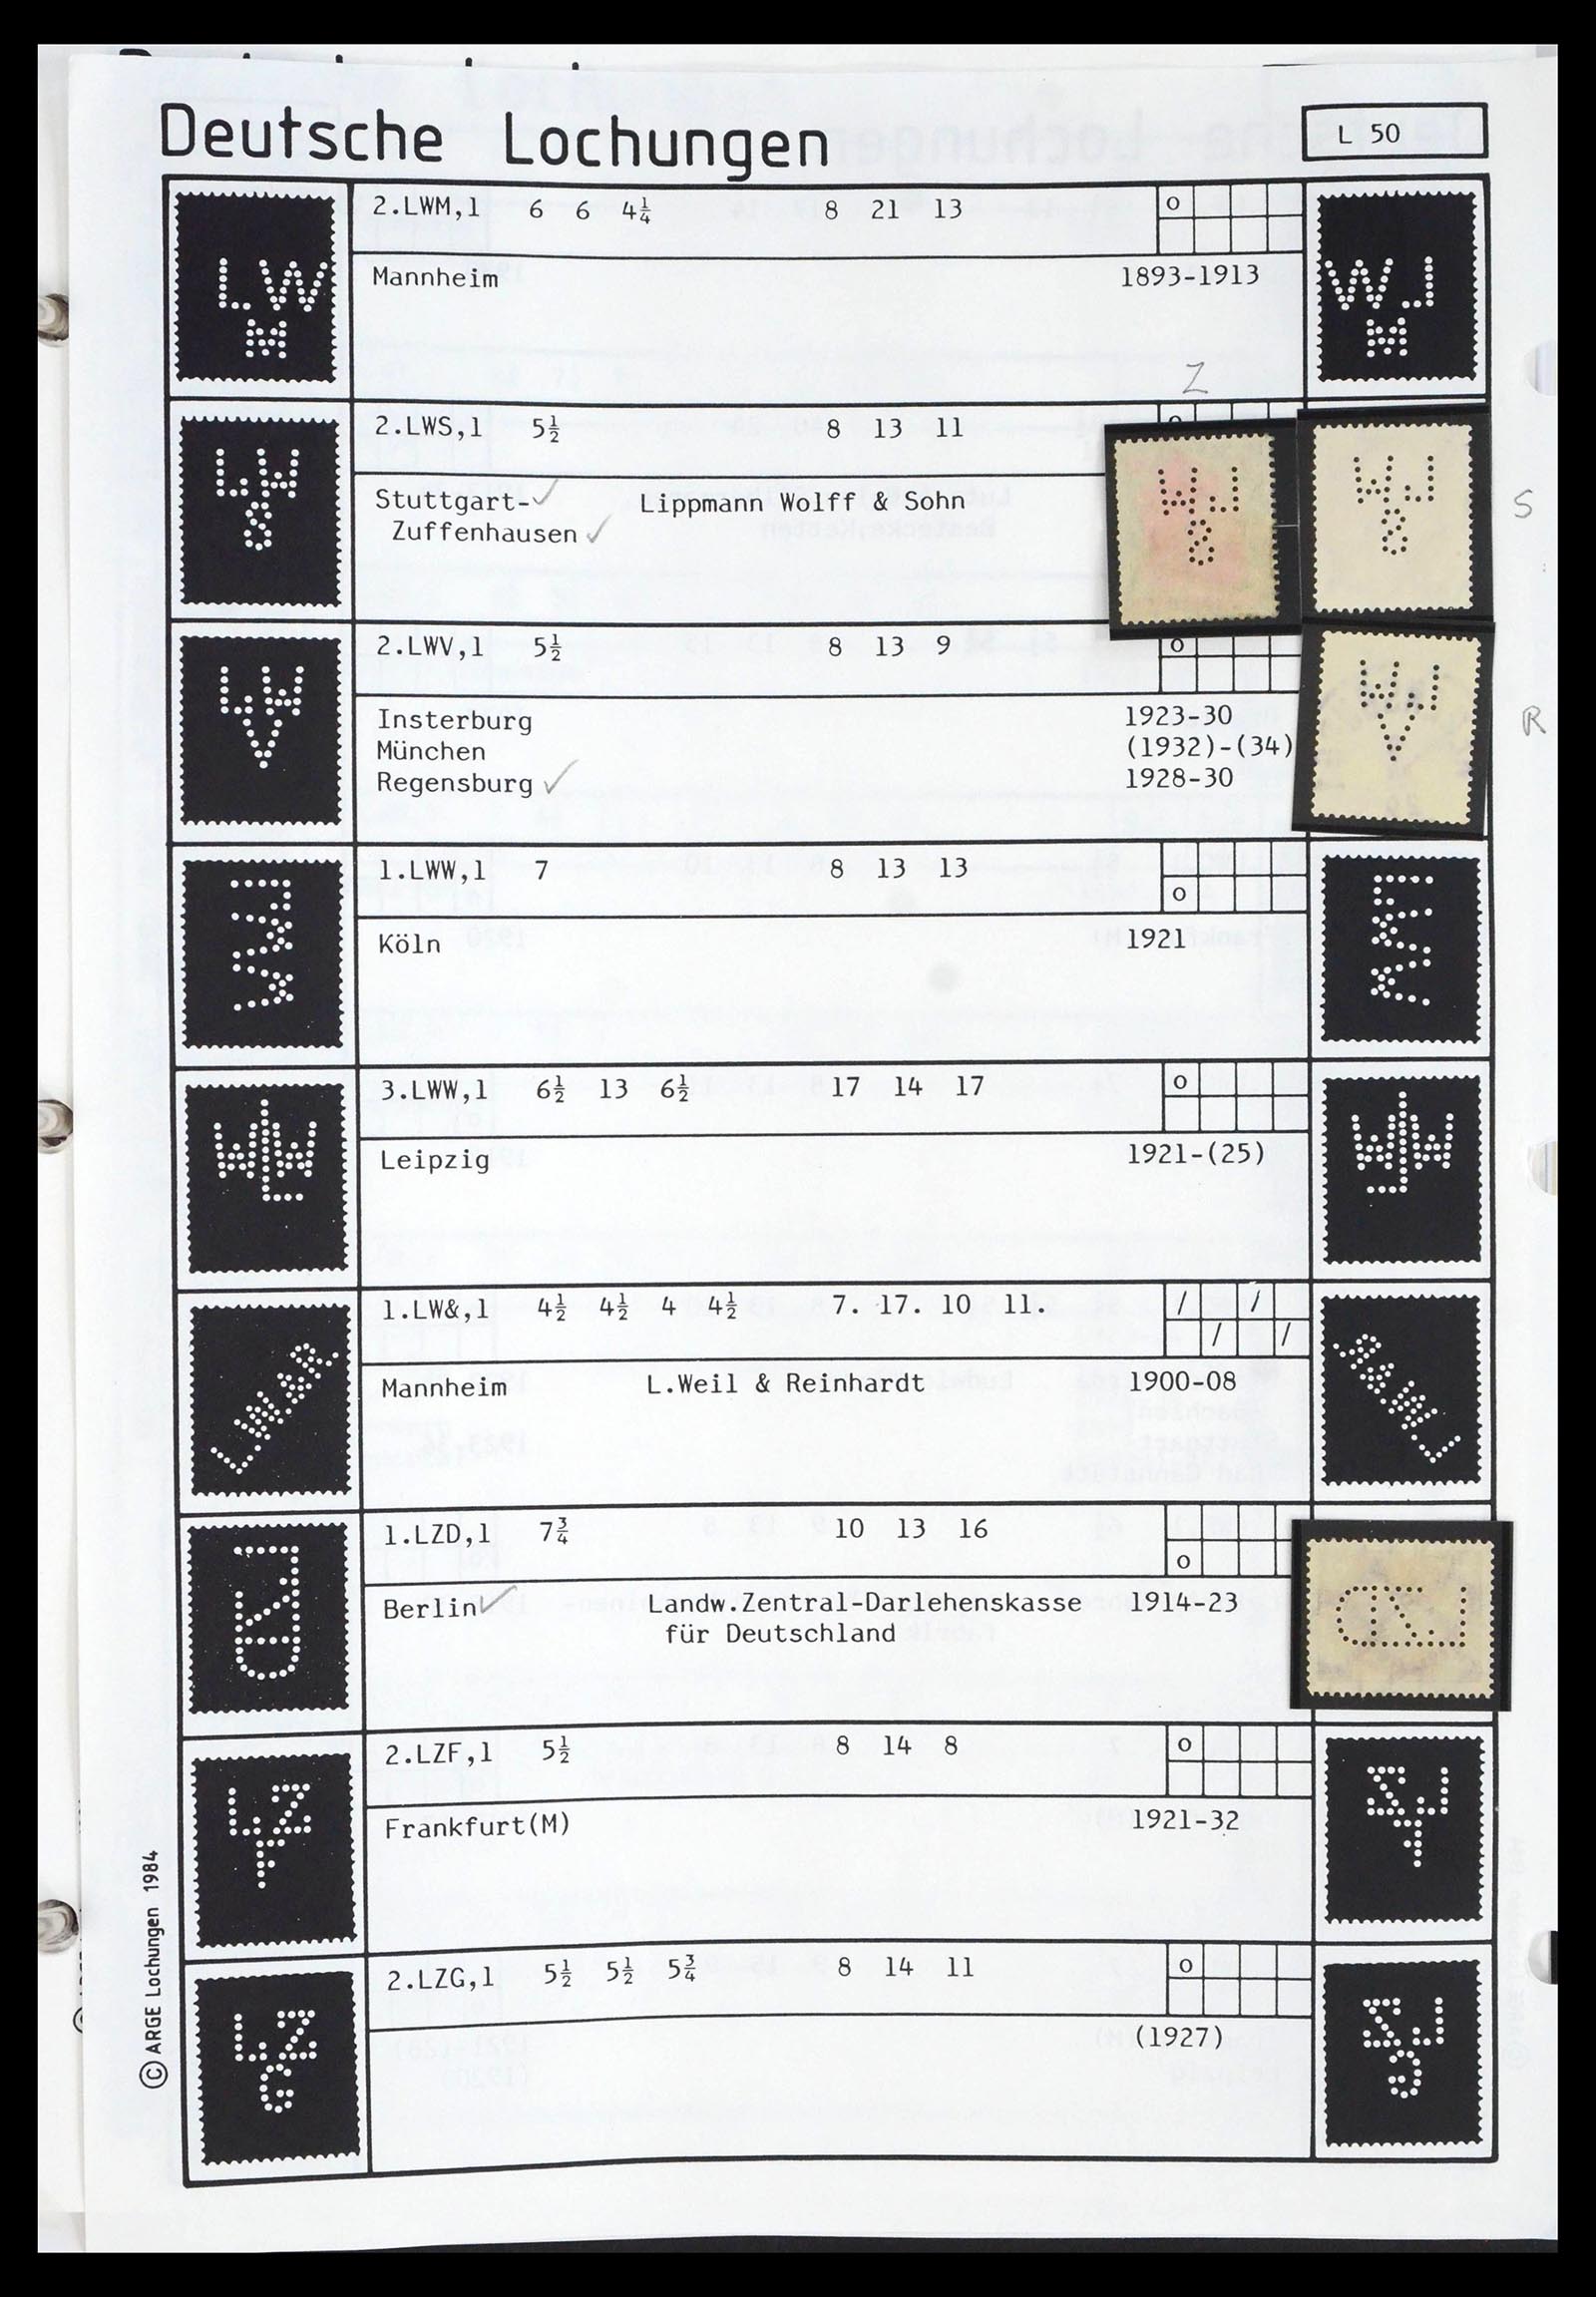 Deutsche Lochungen
L 50
2.LWM,1 6 6 4¼ 8 21 13 o
Mannheim 1893-1913
Z
2.LWS,1 5½ 8 13 11
Stuttgart- Lippmann Wolff & Sohn
Zuffenhausen
S
2.LWV,1 5½ 8 13 9 o
Insterburg 1923-30
München (1932)-(34)
Regensburg 1928-30
R
1.LWW,1 7 8 13 13 o
Köln 1921
3.LWW,1 6½ 13 6½ 17 14 17 o
Leipzig 1921-(25)
1.LW&,1 4½ 4½ 4 4½ 7. 17. 10 11. / / / /
Mannheim L.Weil & Reinhardt 1900-08
1.LZD,1 7¾ 10 13 16 o
Berlin Landw.Zentral-Darlehenskasse 1914-23
für Deutschland
2.LZF,1 5½ 8 14 8 o
Frankfurt(M) 1921-32
2.LZG,1 5½ 5½ 5¾ 8 14 11 o
(1927)
© ARGE Lochungen 1984